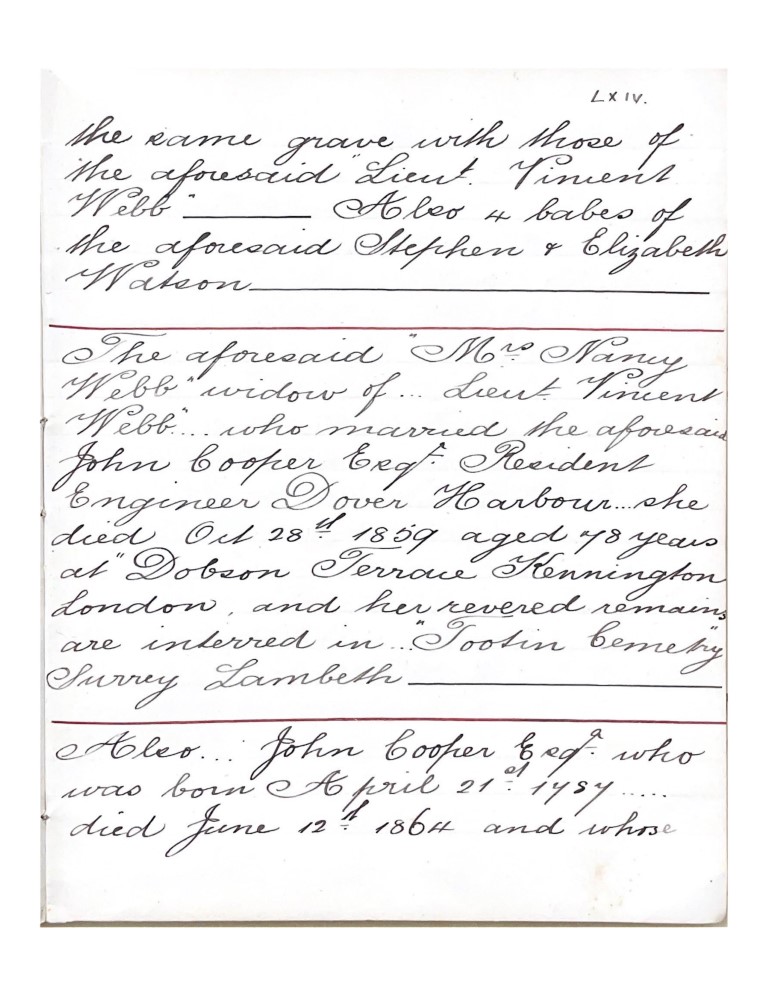 LXIV.
the same grave with those of
the aforesaid "Lieut. Vincent
Webb" Also 4 babes of
the aforesaid Stephen & Elizabeth
Watson
The aforesaid "Mrs Nancy
Webb" widow of... Lieut. Vincent
Webb".... who married the aforesaid
John Cooper Esqr. Resident
Engineer Dover Harbour...she
died Oct 28th 1859 aged 78 years
at "Dobson Terrace Kennington
London, and her revered remains
are interred in... "Tootin Cemetry"
Surrey Lambeth
Also... John Cooper Esqr. who
was born April 21st 1787.....
died June 12th 1864 and whose